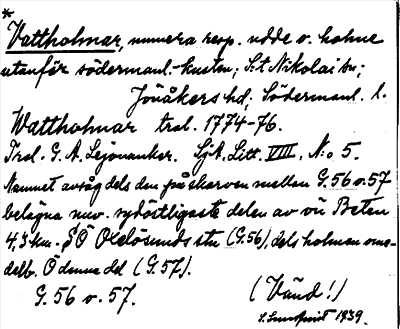 *
Vattholmar, numera resp. udde o. holme
utanför södermanl.-kusten; S:t Nikolai sn;
Jönåkers hd; Södermanl. l.
Wattholmar trol. 1774-76.
Trol. G. A. Lejonanker. SjA. Litt. VIII. N:o 5.
Namnet avsåg dels den på skärven mellan G.56 o. 57
belägna nuv. sydöstligaste delen av ön Beten
4,3 km. SÖ Oxelösunds stn (G.56), dels holmen ome-
delb. Ö denna del (G.57).
G. 56 o. 57.
(Vänd!)
1939.